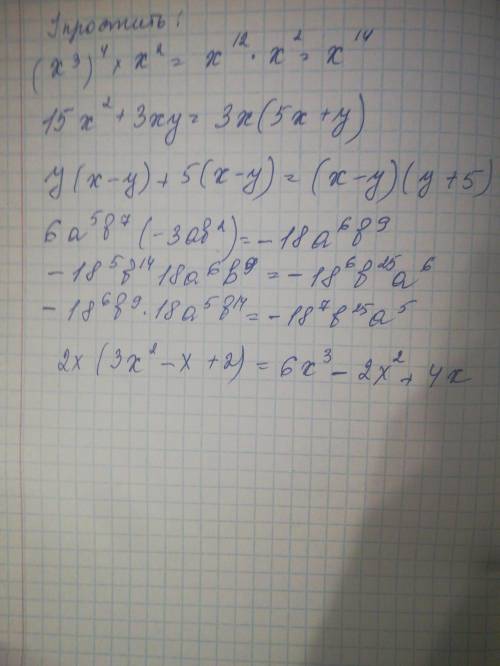 Упростить!
(x³)⁴ × x² = x¹² · x² = x¹⁴
15x² + 3xy = 3x(5x+y)
y(x-y) + 5(x-y) = (x-y)(y+5)
6a⁵в⁷(-3ав²) = -18а⁶в⁹
-18⁵в¹⁴18а⁶в⁹ = -18⁶в²⁵а⁶
-18⁶в⁹·18а⁵в¹⁴ = -18⁷в²⁵а⁵
2x(3x²-x+2) = 6x³-2x²+4x